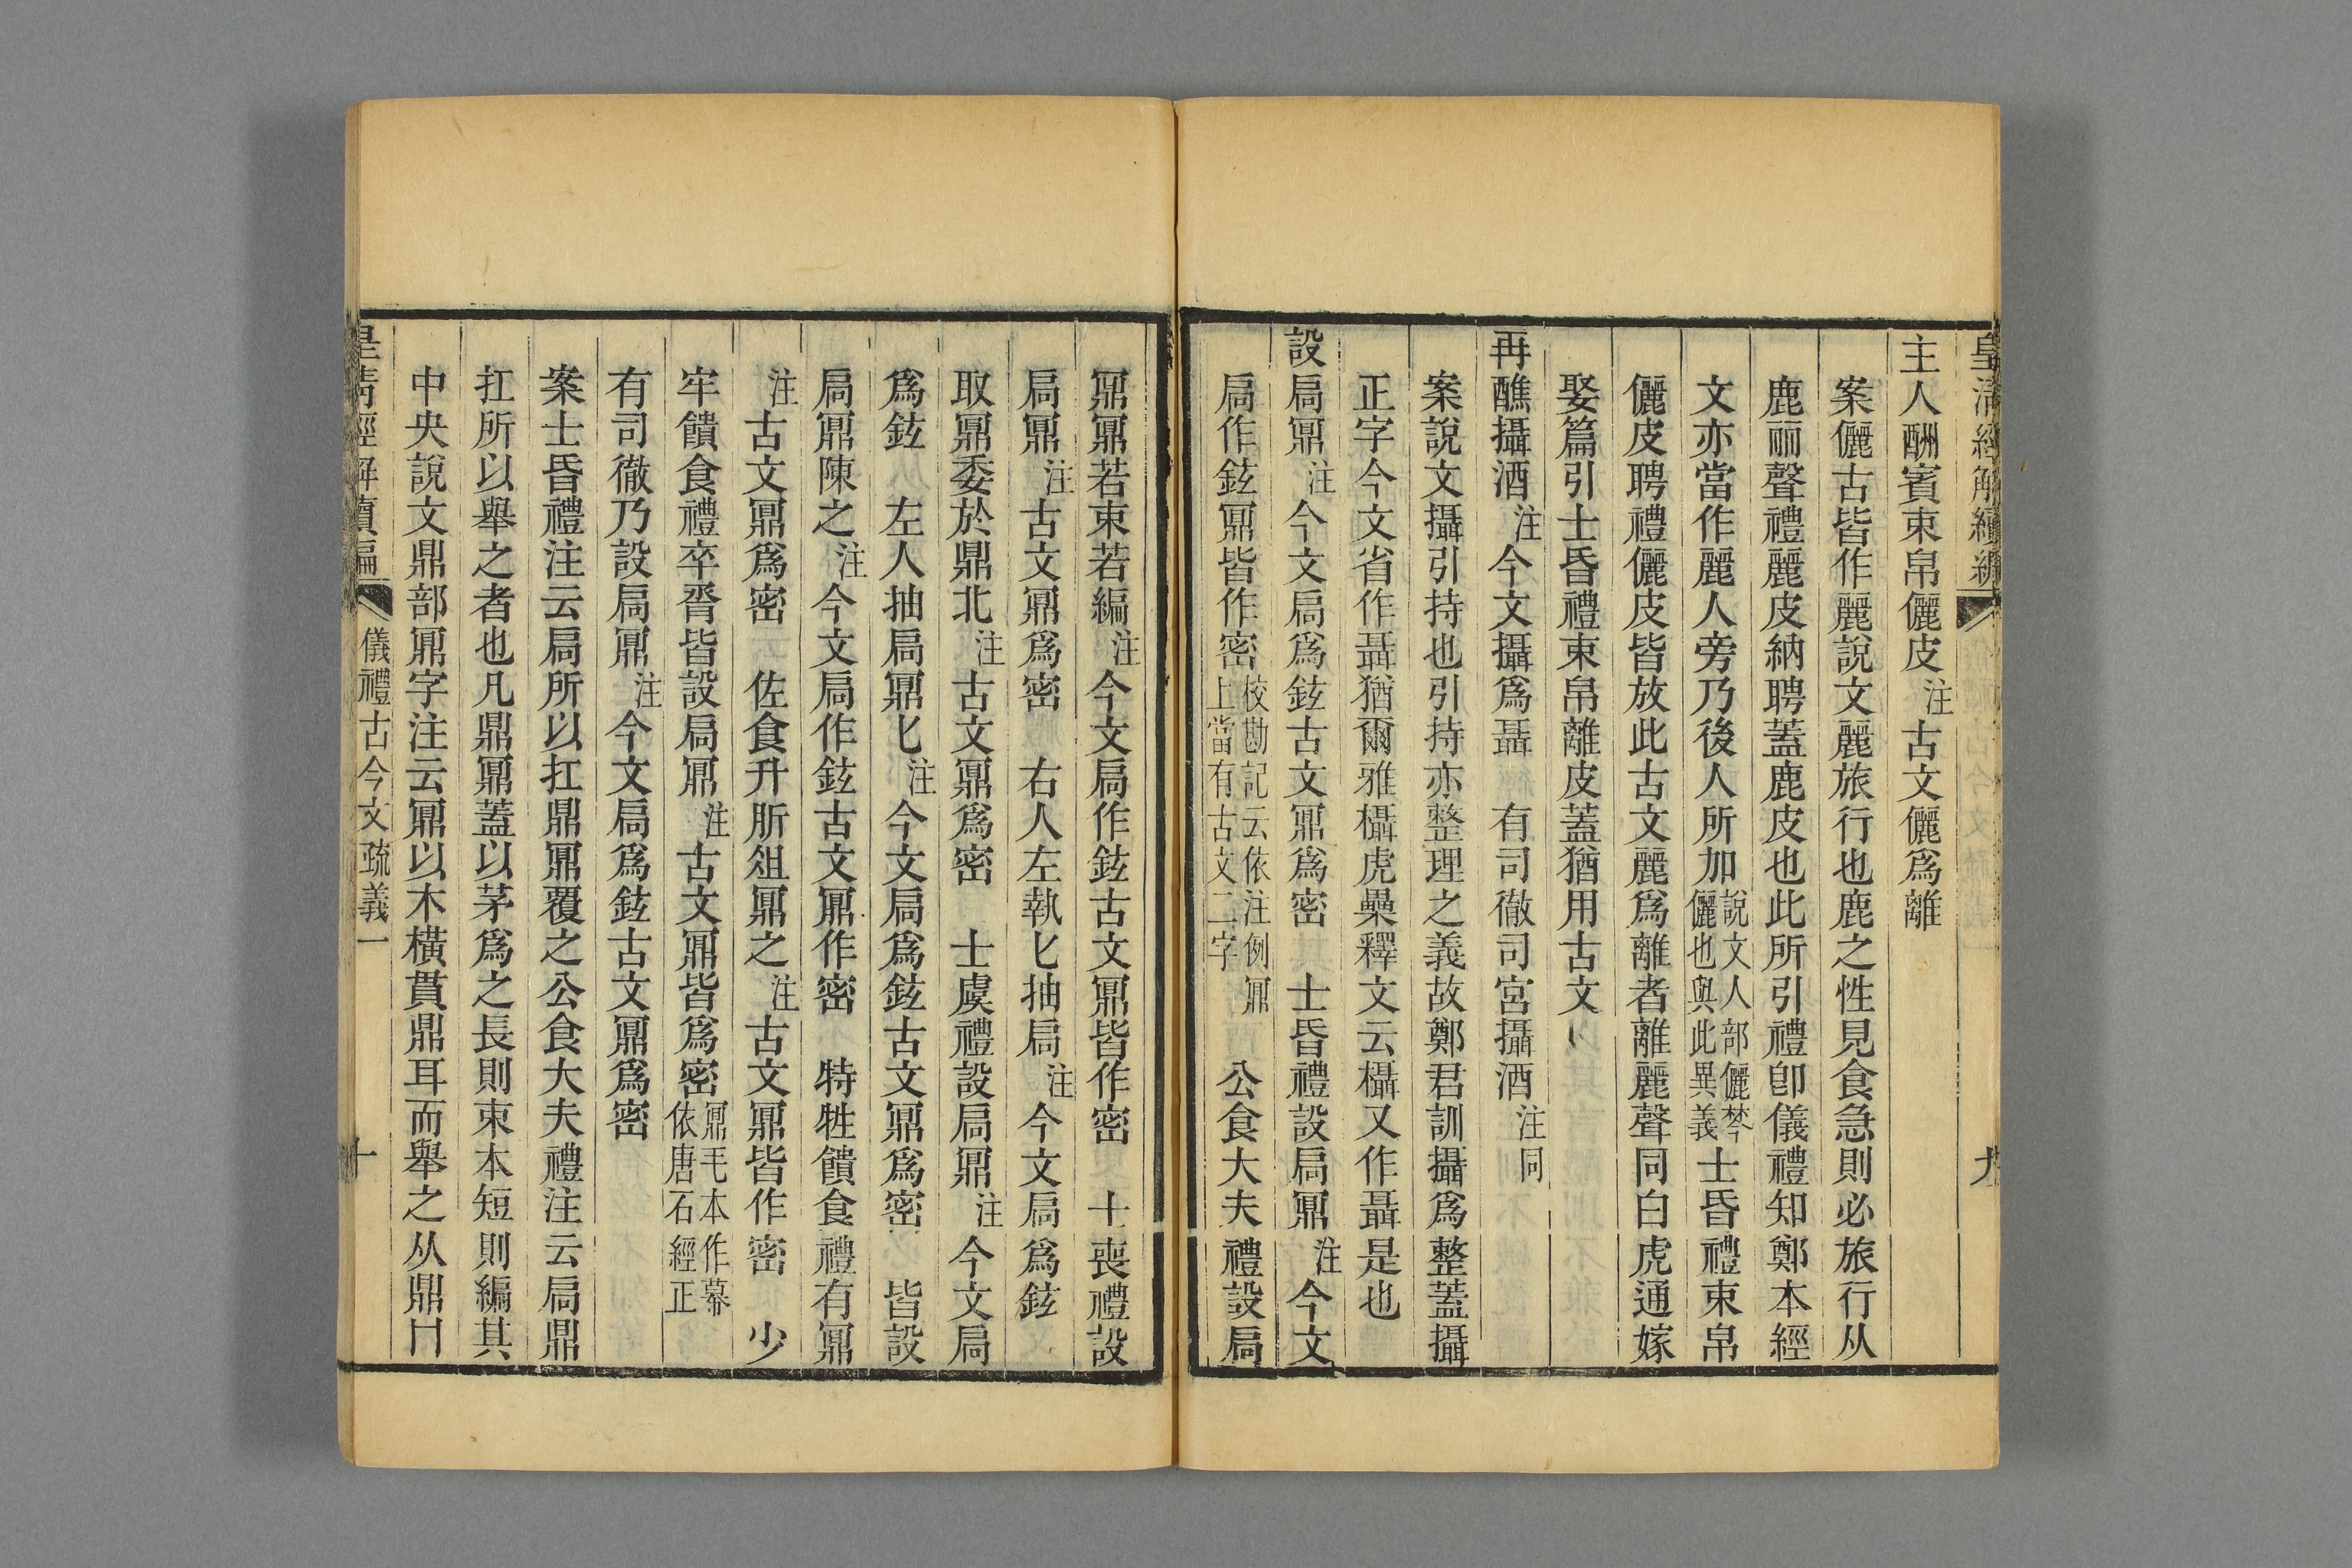 皇清經解續編 九
主人酬賓束帛儷皮注古文儷爲離
案儷古皆作麗說文麗旅行也鹿之性見食急則必旅行从
鹿丽聲禮麗皮納聘蓋鹿皮也此所引禮卽儀禮知鄭本經
文亦當作麗人旁乃後人所加說文人部儷棽儷也與此異義士昏禮束帛
儷皮聘禮儷皮皆放此古文麗爲離者離麗聲同白虎通嫁
娶篇引士昏禮束帛離皮蓋猶用古文
再醮攝酒注今文攝爲聶 有司徹司宮攝酒注同
案說文攝引持也引持亦整理之義故鄭君訓攝爲整蓋攝
正字今文省作聶猶爾雅欇虎櫐釋文云欇又作聶是也
設扃鼏注今文扃爲鉉古文鼏爲密 士昏禮設扃鼏注今文
扃作鉉鼏皆作密校勘記云依注例鼏上當有古文二字 公食大夫禮設扃
鼏鼏若束若編注今文扃作鉉古文鼏皆作密 士喪禮設
扃鼏注古文鼏爲密 右人左執匕抽扃注今文扃爲鉉
取鼏委於鼎北注古文鼏爲密 士虞禮設扃鼏注今文扃
爲鉉 左人抽扃鼏匕注今文扃爲鉉古文鼏爲密 皆設
扃鼏陳之注今文扃作鉉古文鼏作密 特牲饋食禮有鼏
注古文鼏爲密 佐食升肵俎鼏之注古文鼏皆作密 少
牢饋食禮卒脀皆設扃鼏注古文鼏皆爲密鼏毛本作幕依唐石經正
有司徹乃設扃鼏注今文扃爲鉉古文鼏爲密
案士昏禮注云扃所以扛鼎鼏覆之公食大夫禮注云扃鼎
扛所以舉之者也凡鼎鼏蓋以茅爲之長則束本短則編其
中央說文鼎部鼏字注云鼏以木橫貫鼎耳而舉之从鼎冂
皇清經解續編 儀禮古今文疏義一 十